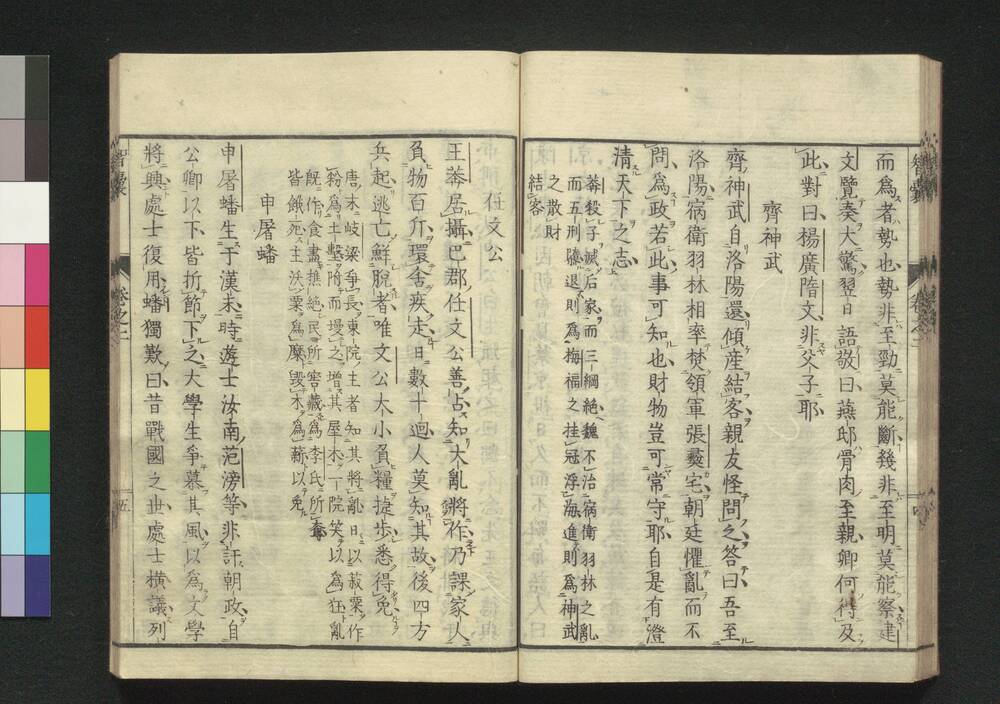 而爲者勢也勢非至勁莫能斷幾非至明莫能察建
文覽奏大驚翌日語敬曰燕邸骨肉至親卿何得及
此對曰楊廣隋文非父子耶
齊神武
齊神武自洛陽還傾産結客親友怪問之答曰吾至
洛陽宿衛羽林相率焚領軍張彛宅朝廷懼亂而不
問爲政若此事可知也財物豈可常守耶自是有澄
清天下之志
莽殺子滅后家而三綱絶魏不治宿衛羽林之亂
而五刑隳退則爲梅福之挂冠浮海進則爲神武
之散財
結客
任文公
王莽居攝巴郡任文公善占知大亂將作乃課家人
負物百斤環舍疾走日數十迴人莫知其故後四方
兵起逃亡鮮脫者唯文公大小負糧捷步悉得免
唐末岐梁爭長東院主者知其將亂日以菽粟作
粉爲土墼附而墁之增其屋木一院笑以爲狂亂
旣作食盡樵絶民所窖藏爲李氏所奪
皆餓死主沃粟爲糜毀木爲薪以免
申屠蟠
申屠蟠生于漢末時遊士汝南范滂等非訐朝政自
公卿以下皆折節下之大學生爭慕其風以爲文學
將興處士復用蟠獨歎曰昔戰國之世處士橫議列
智囊
卷之二
五